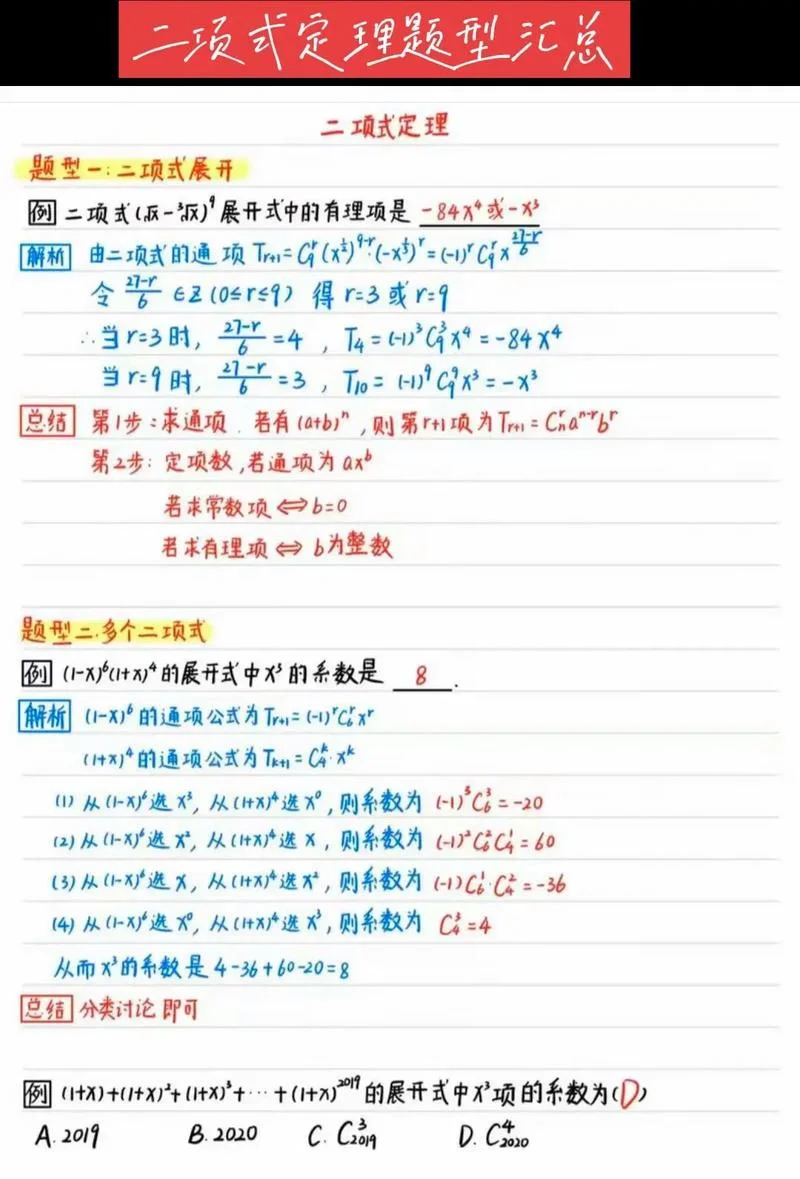 二项式定理题型汇总
二项式定理
题型一:二项式展开
例 二项式(√x-³√x)⁹展开式中的有理项是 -84x⁴或-x³
解析 由二项式的通项 Tr+1=C₉ʳ(x^½)^9-r·(-x^⅓)ʳ=(-1)ʳC₉ʳx^(27-r)/6
令 (27-r)/6 ∈Z (0≤r≤9) 得 r=3 或 r=9
∴当 r=3 时, (27-r)/6=4 , T₄=(-1)³C₉³x⁴=-84x⁴
当 r=9 时, (27-r)/6=3 , T₁₀=(-1)⁹C₉⁹x³=-x³
总结 第1步:求通项. 若有(a+b)ⁿ,则第r+1项为Tr+1=Cₙʳaⁿ⁻ʳbʳ
第2步: 定项数,若通项为axᵇ
若求常数项⇔b=0
若求有理项⇔ b为整数
题型二.多个二项式
例 (1-x)⁶(1+x)⁴的展开式中x³的系数是 8 .
解析 (1-x)⁶的通项公式为Tr+1=(-1)ʳC₆ʳxʳ
(1+x)⁴的通项公式为Tk+1=C₄ᵏ·xᵏ
(1) 从(1-x)⁶选x³, 从(1+x)⁴选x⁰, 则系数为 (-1)³C₆³=-20
(2) 从(1-x)⁶选x², 从(1+x)⁴选x, 则系数为 (-1)²C₆²C₄¹=60
(3) 从(1-x)⁶选x, 从(1+x)⁴选x², 则系数为 (-1)C₆¹·C₄²=-36
(4) 从(1-x)⁶选x⁰, 从(1+x)⁴选x³, 则系数为 C₄³=4
从而x³的系数是 4-36+60-20=8
总结 分类讨论即可
例 (1+x)+(1+x)²+(1+x)³+…+(1+x)²⁰¹⁹的展开式中x³项的系数为(D)
A. 2019 B. 2020 C. C³₂₀₁₉ D. C⁴₂₀₂₀